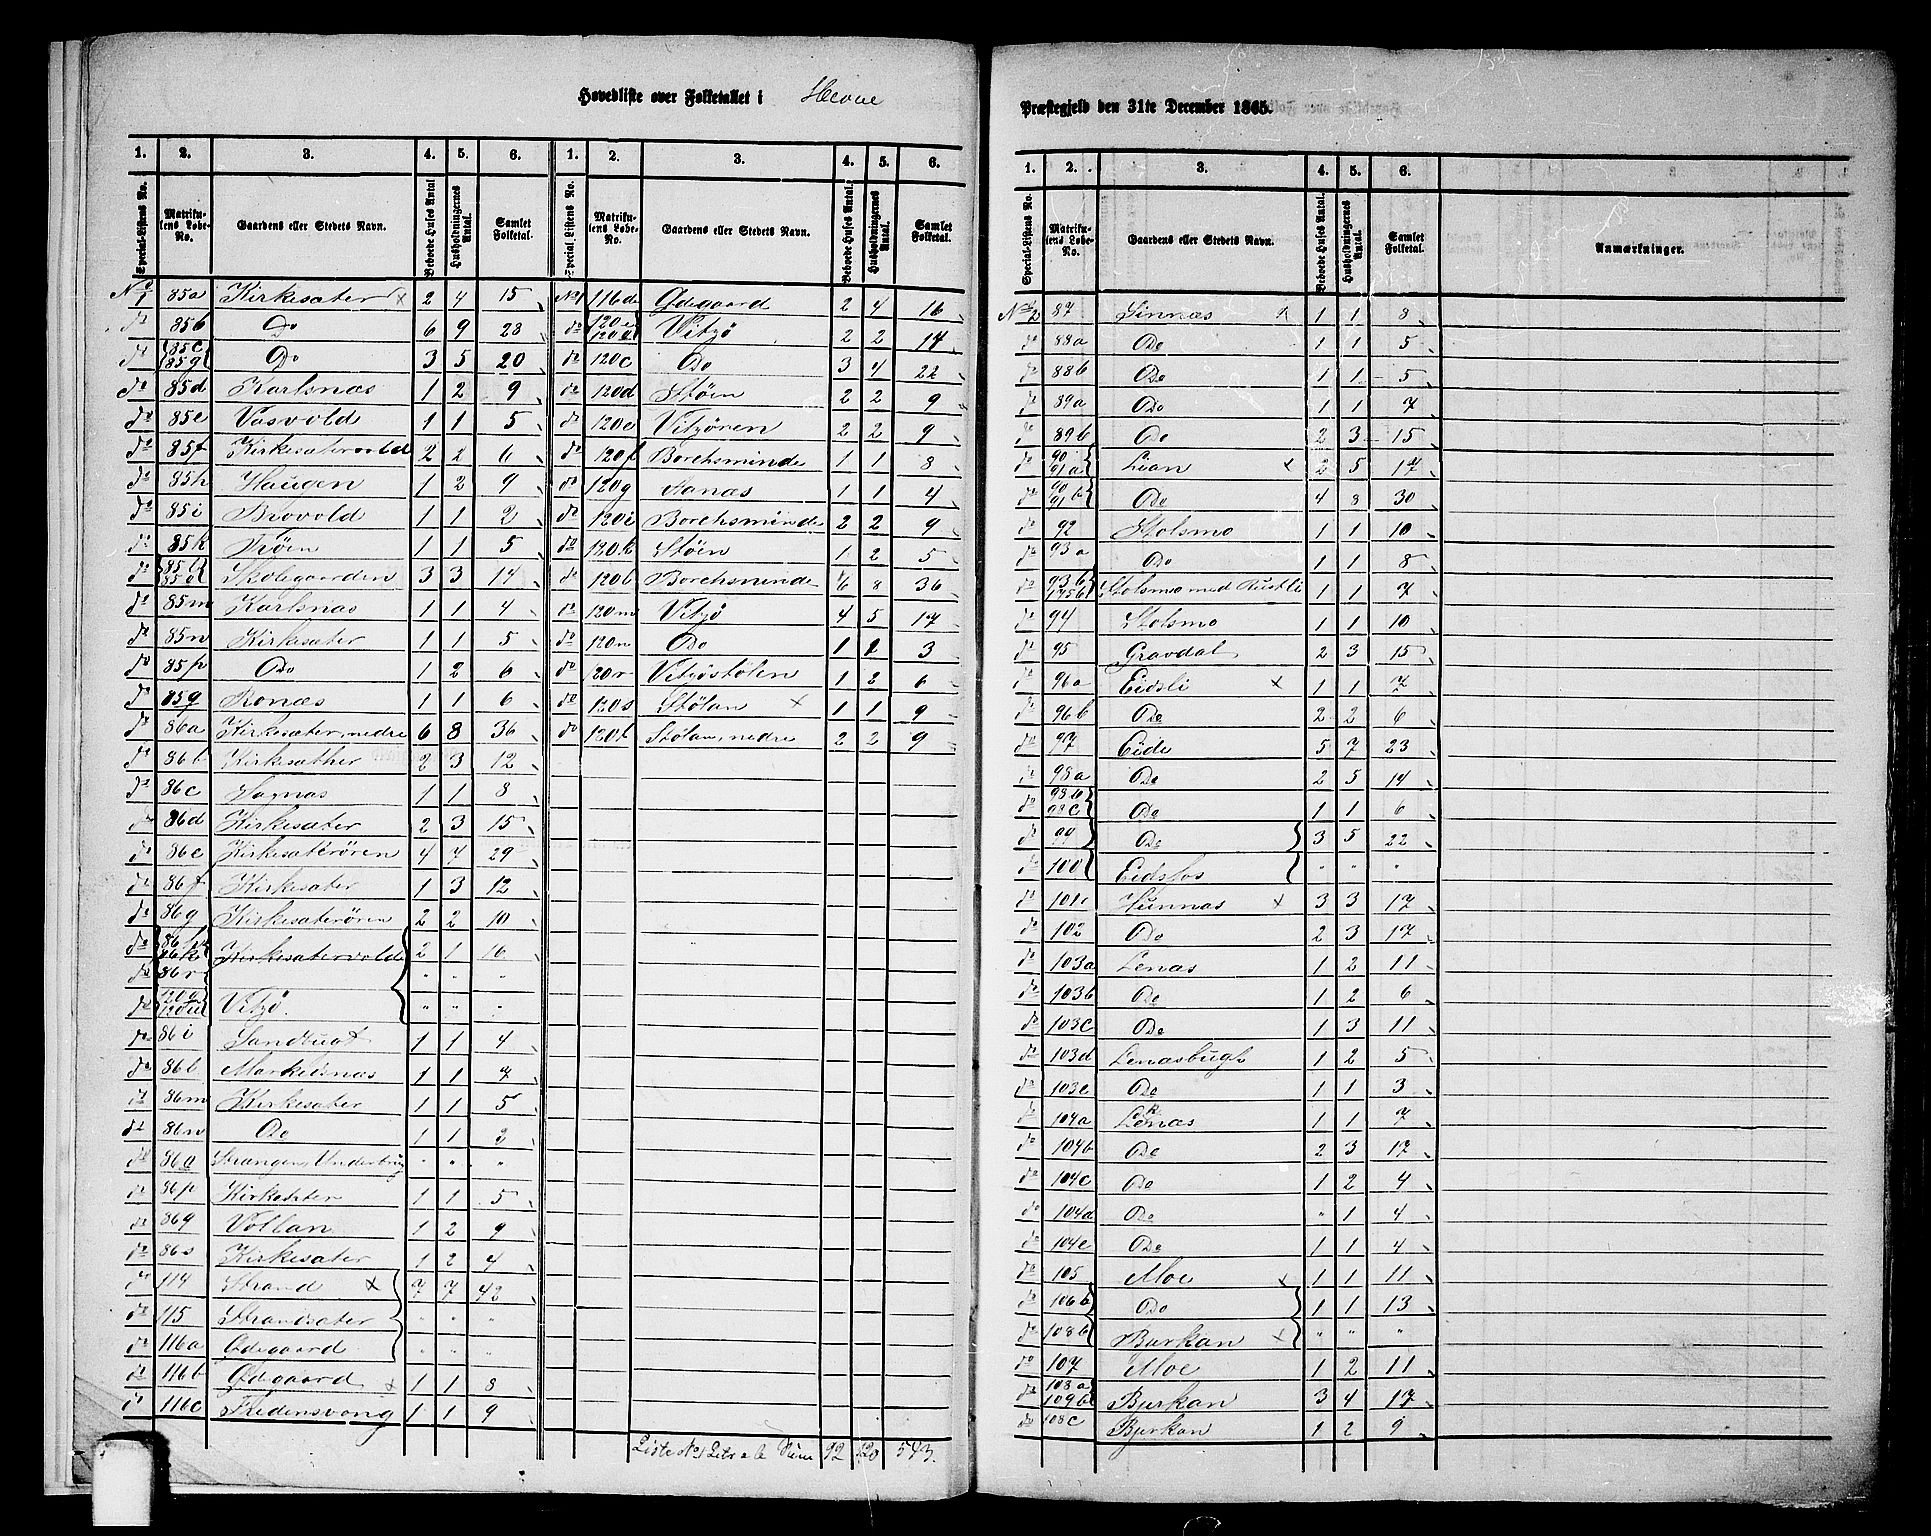 Hovedliste over Folketallet i Hevne
Præstegjeld den 31te December 1865.
1. 2. 3. 4. 5. 6. 1. 2. 3. 4. 5. 6.
Special-Listens No. Matrikulens Løbe-No. Gaardens eller Stedets Navn. Beboede Huses Antal Husholdningernes Antal. Samlet Folketal. Special-Listens No. Matrikulens Løbe-No. Gaardens eller Stedets Navn. Beboede Huses Antal. Husholdningernes Antal. Samlet Folketal.
No 1 85a Kirkesæter x 2 4 15
do 85b Do 6 9 28
do 85c 85g Do 3 5 20
do 85d Karlsnæs 1 2 9
do 85e Vasvold 1 1 5
do 85f Kirkesætervold 2 2 6
do 85h Haugen 1 2 9
do 85i Brovold 1 1 2
do 85k Trøen 1 1 5
do 85l 85o Skolegaarden 3 3 14
do 85m Karlsnæs 1 1 4
do 85n Kirkesæter 1 1 5
do 85p Do 1 2 6
do 85q Ronæs 1 1 6
do 86a Kirkesæter, nedre 6 8 36
do 86b Kirkesæther 2 3 12
do 86c Hagnæs 1 1 8
do 86d Kirkesæter 2 3 15
do 86e Kirkesæterøren 4 7 29
do 86f Kirkesæter 1 3 12
do 86g Kirkesæterøren 2 2 10
do 86h 86k Kirkesætervold 2 1 16
do 86r " " "
do 120a Vitsø. " " "
do 86i Sandbugt 1 1 4
do 86l Markusnæs 1 1 7
do 86m Kirkesæter 1 1 5
do 86n Do 1 1 2
do 86o Strangen, Underbrug " " "
do 86p Kirkesæter 1 1 5
do 86q Vollan 1 2 9
do 86s Kirkesæter 1 2 4
do 114 Strand x 7 7 42
do 115 Strandsæter " " "
do 116a Ødegaard " " "
do 116b Ødgaard x 1 1 8
do 116c Fredensvang 1 1 9
No 1 116d Ødegaard 2 4 16
do 120 Vitsø 2 2 14
do 120c Do 3 4 22
do 120d Støen 2 2 9
do 120e Vitsøren 2 2 9
do 120f Borchsminde 1 1 8
do 120g Aanæs 1 1 4
do 120i Borchsminde 2 2 9
do 120k Støen 1 2 5
do 120l Borchsminde 6 8 36
do 120m Vitsø 4 5 17
do 120n Do 1 2 3
do 120r Vitsøstølen 1 2 6
do 120s Stølan x 1 1 9
do 120t Stølan, nedre 2 2 9
Liste No 1 92 120 543.
1. 2. 3. 4. 5. 6.
Special-Listens No. Matrikulens Løbe-No. Gaardens eller Stedets Navn. Beboede Huses Antal. Husholdningernes Antal. Samlet Folketal. Anmærkninger.
No 2 87 Sinnæs x 1 1 8
do 88a Do 1 1 5
do 88b Do 1 1 5
do 89a Do 1 1 7
do 89b Do 2 3 15
do 90 91a Lian x 2 5 17
do 90 91b Do 4 8 30
do 92 Stolsmo 1 1 10
do 93a Do 1 1 8
do 93b 175b Stolsmo med Rustli 1 1 7
do 94 Stolsmo 1 1 10
do 95 Gravdal 2 3 15
do 96a Eidsli x 1 1 7
do 96b Do 2 2 6
do 97 Eide 5 7 23
do 98a Do 2 5 14
do 98b 98c Do 1 1 6
do 99 Do 3 5 22
do 100 Eidsfos " " "
do 101 Hunnæs x 3 3 17
do 102 Do 2 3 17
do 103a Lenæs 1 2 11
do 103b Do 1 2 6
do 103c Do 1 3 11
do 103d Lenæsbugt 1 2 5
do 103e Do 1 1 3
do 104a Lenæs 1 1 7
do 104b Do 2 3 17
do 104c Do 1 2 4
do 104d Do " 1 4
do 104e Do 1 1 4
do 105 Moe x 1 1 11
do 106b Do 1 1 13
do 108b Burkan x " " "
do 107 Moe 1 2 11
do 108a 109b Burkan 3 4 17
do 108c Bjerkan 1 2 9